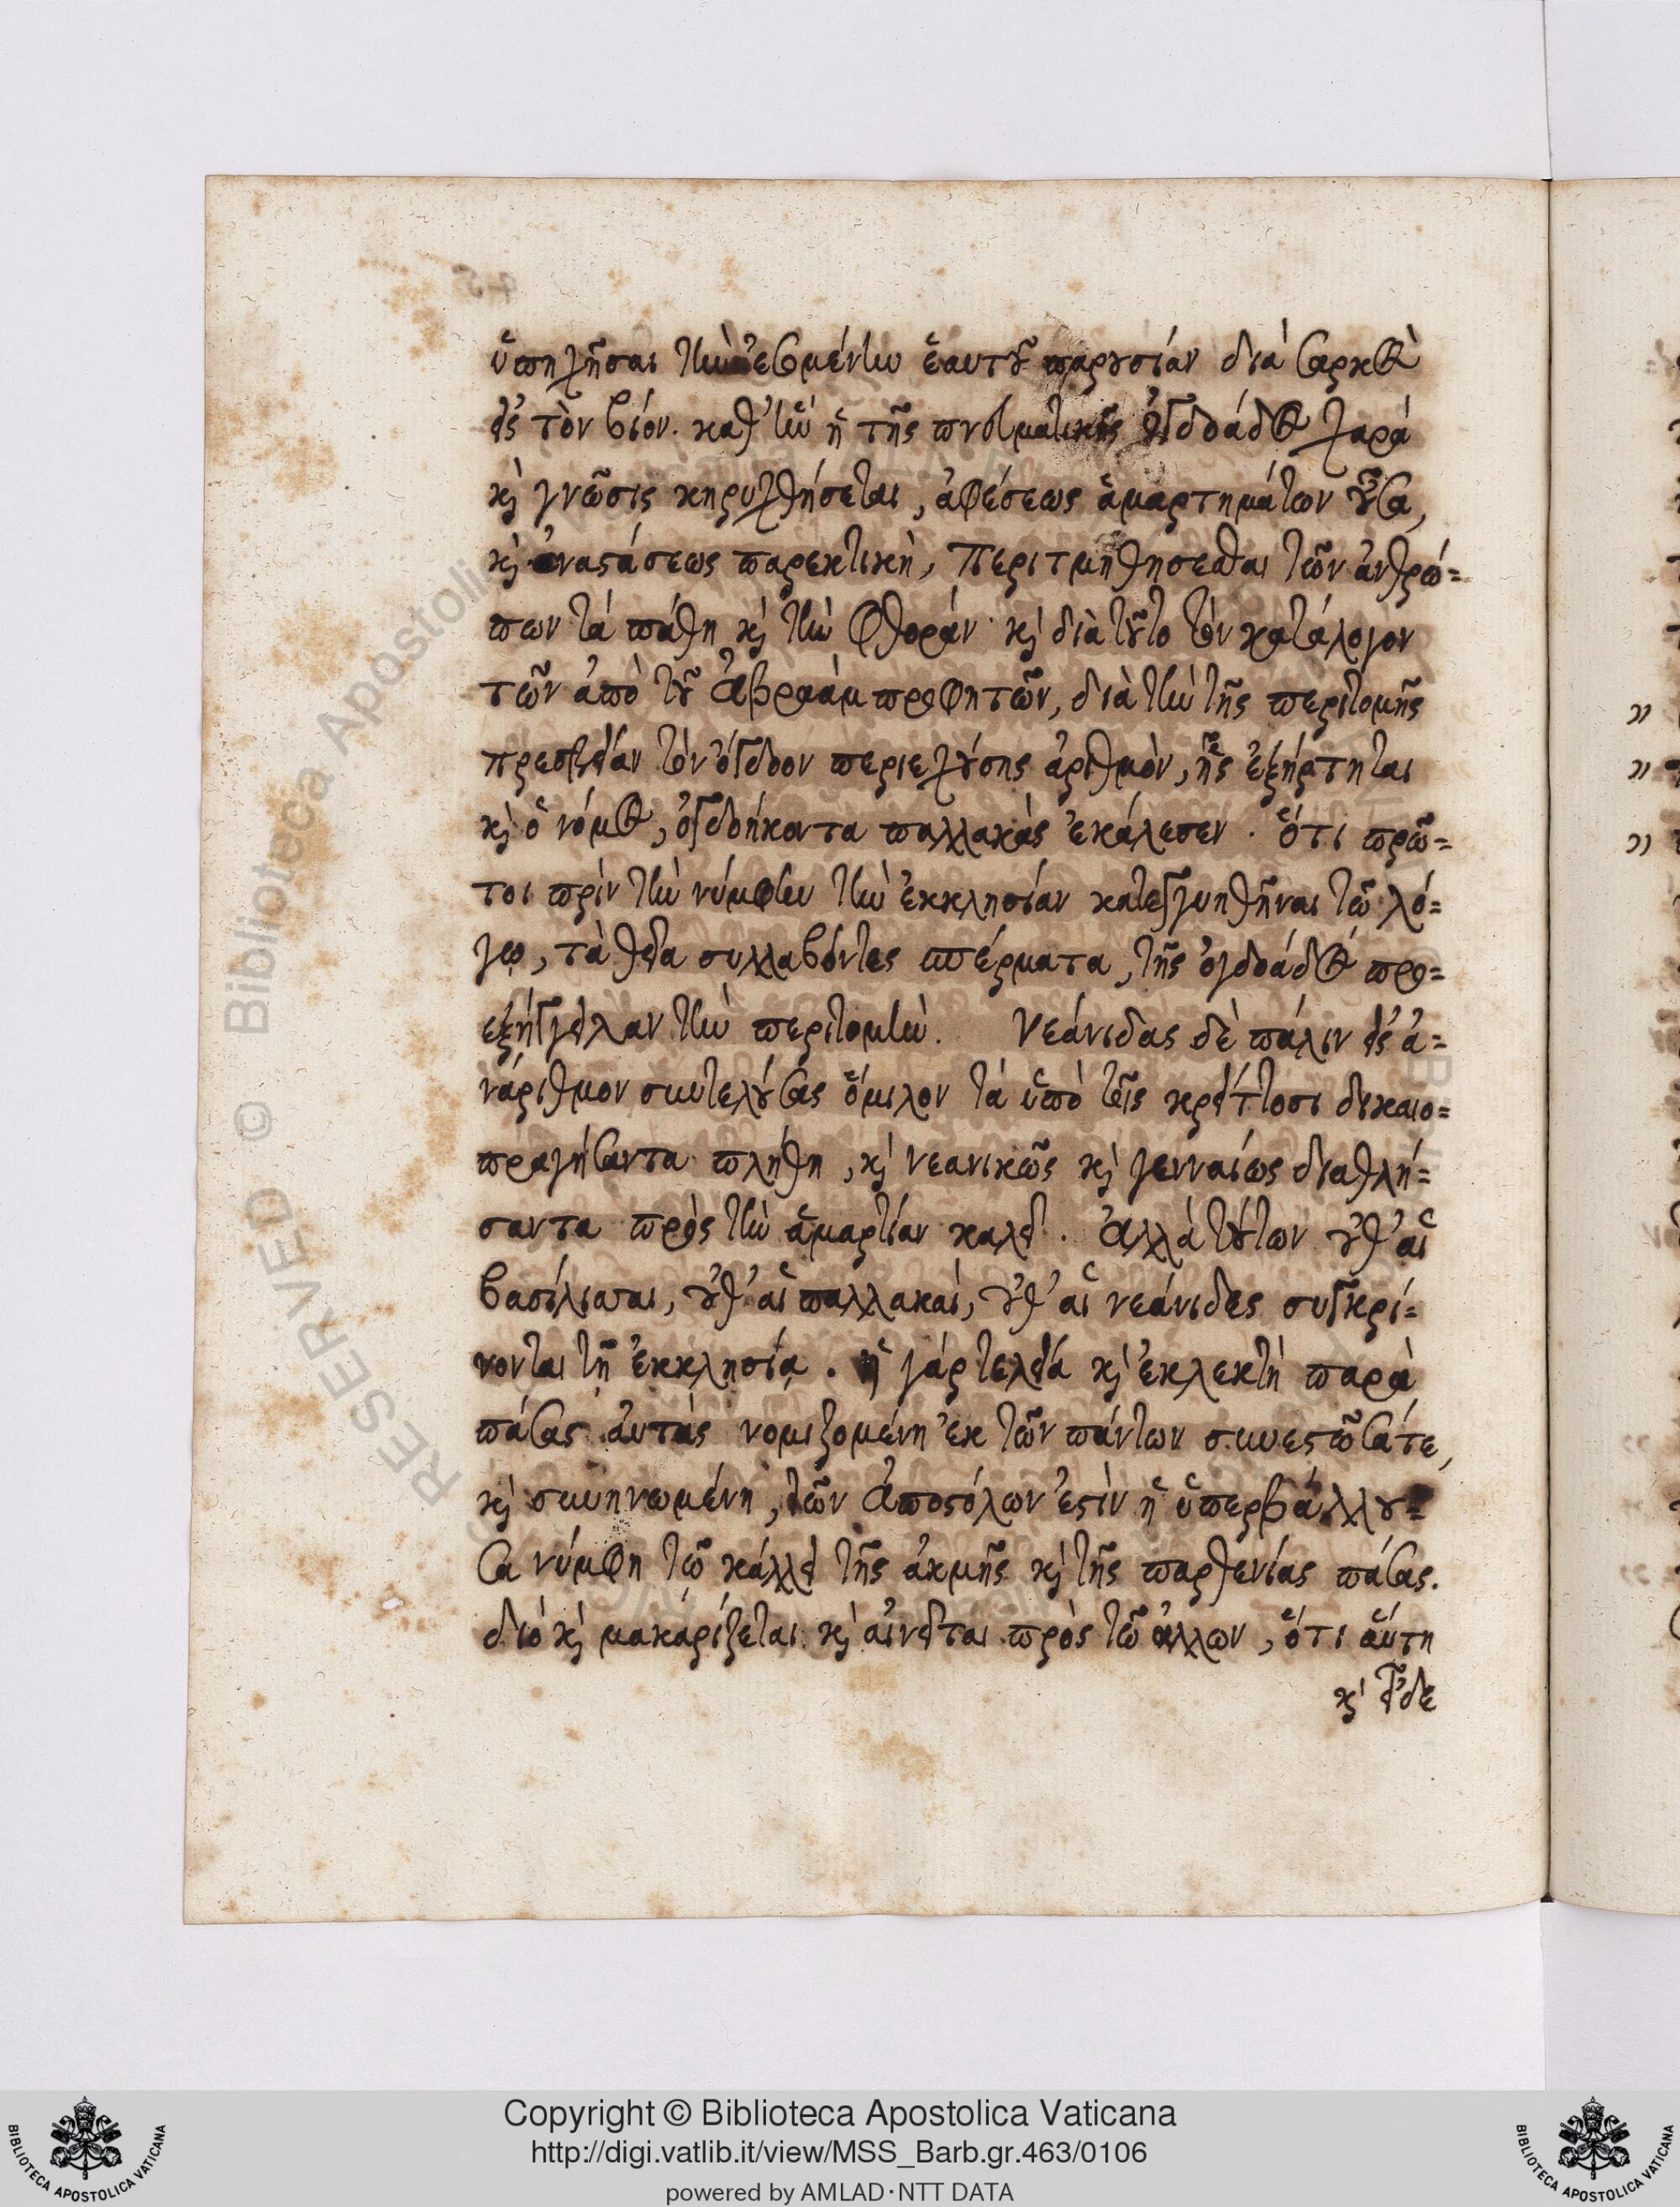 ὑπηχῆσαι τὴν ἐσομένην ἑαυτοῦ παρουσίαν διὰ σαρκὸς
εἰς τὸν βίον. καθ' ἣν ἡ τῆς πνευματικῆς ὀγδοάδος χαρὰ
καὶ γνῶσις κηρυχθήσεται, ἀφέσεως ἁμαρτημάτων οὖσα,
καὶ ἀναστάσεως παρεκτικὴ, Περιτμηθησεσθαι τῶν ἀνθρώ=
πων τὰ πάθη καὶ τὴν φθοράν· καὶ διὰ τοῦτο τὸν κατάλογον
τῶν ἀπὸ τοῦ Ἀβραὰμ προφητῶν, διὰ τὴν τῆς περιτομῆς
πρεσβείαν τὸν ὄγδοον περιεχούσης ἀριθμὸν, ἧς ἐξήρτηται
καὶ ὁ νόμος, ὀγδοήκοντα παλλακὰς ἐκάλεσεν. ὅτι πρῶ=
τοι πρὶν τὴν νύμφην τὴν ἐκκλησίαν κατεγγυηθῆναι τῷ λό=
γῳ, τὰ θεῖα συλλαβόντες σπέρματα, τῆς ὀγδοάδος προ=
εξήγγειλαν τὴν περιτομὴν. Νεάνιδας δὲ πάλιν εἰς ἀ=
νάριθμον συντελούσας ὅμιλον τὰ ὑπὸ τοῖς κρείττοσι δικαιο=
πραγήσαντα πλήθη, καὶ νεανικῶς καὶ γενναίως διαθλή=
σαντα πρὸς τὴν ἁμαρτίαν καλεῖ. Ἀλλὰ τούτων οὔθ' αἱ
βασίλισσαι, οὔθ' αἱ παλλακαὶ, οὔθ' αἱ νεάνιδες συγκρί=
νονται τῇ ἐκκλησίᾳ. ἡ γὰρ τελεία καὶ ἐκλεκτὴ παρὰ
πάσας αὐτὰς νομιζομένη ἐκ τῶν πάντων συνεστῶσά τε,
καὶ συνηνωμένη, τῶν Ἀποστόλων ἐστὶν ἡ ὑπερβάλλου=
σα νύμφη τῷ κάλλει τῆς ἀκμῆς καὶ τῆς παρθενίας πάσας.
διὸ καὶ μακαρίζεται καὶ αἰνεῖται πρὸς τῶν ἄλλων, ὅτι αὕτη
καὶ εἶδε
Copyright © Biblioteca Apostolica Vaticana
http://digi.vatlib.it/view/MSS_Barb.gr.463/0106
powered by AMLAD·NTT DATA
BIBLIOTECA APOSTOLICA VATICANA
BIBLIOTECA APOSTOLICA VATICANA